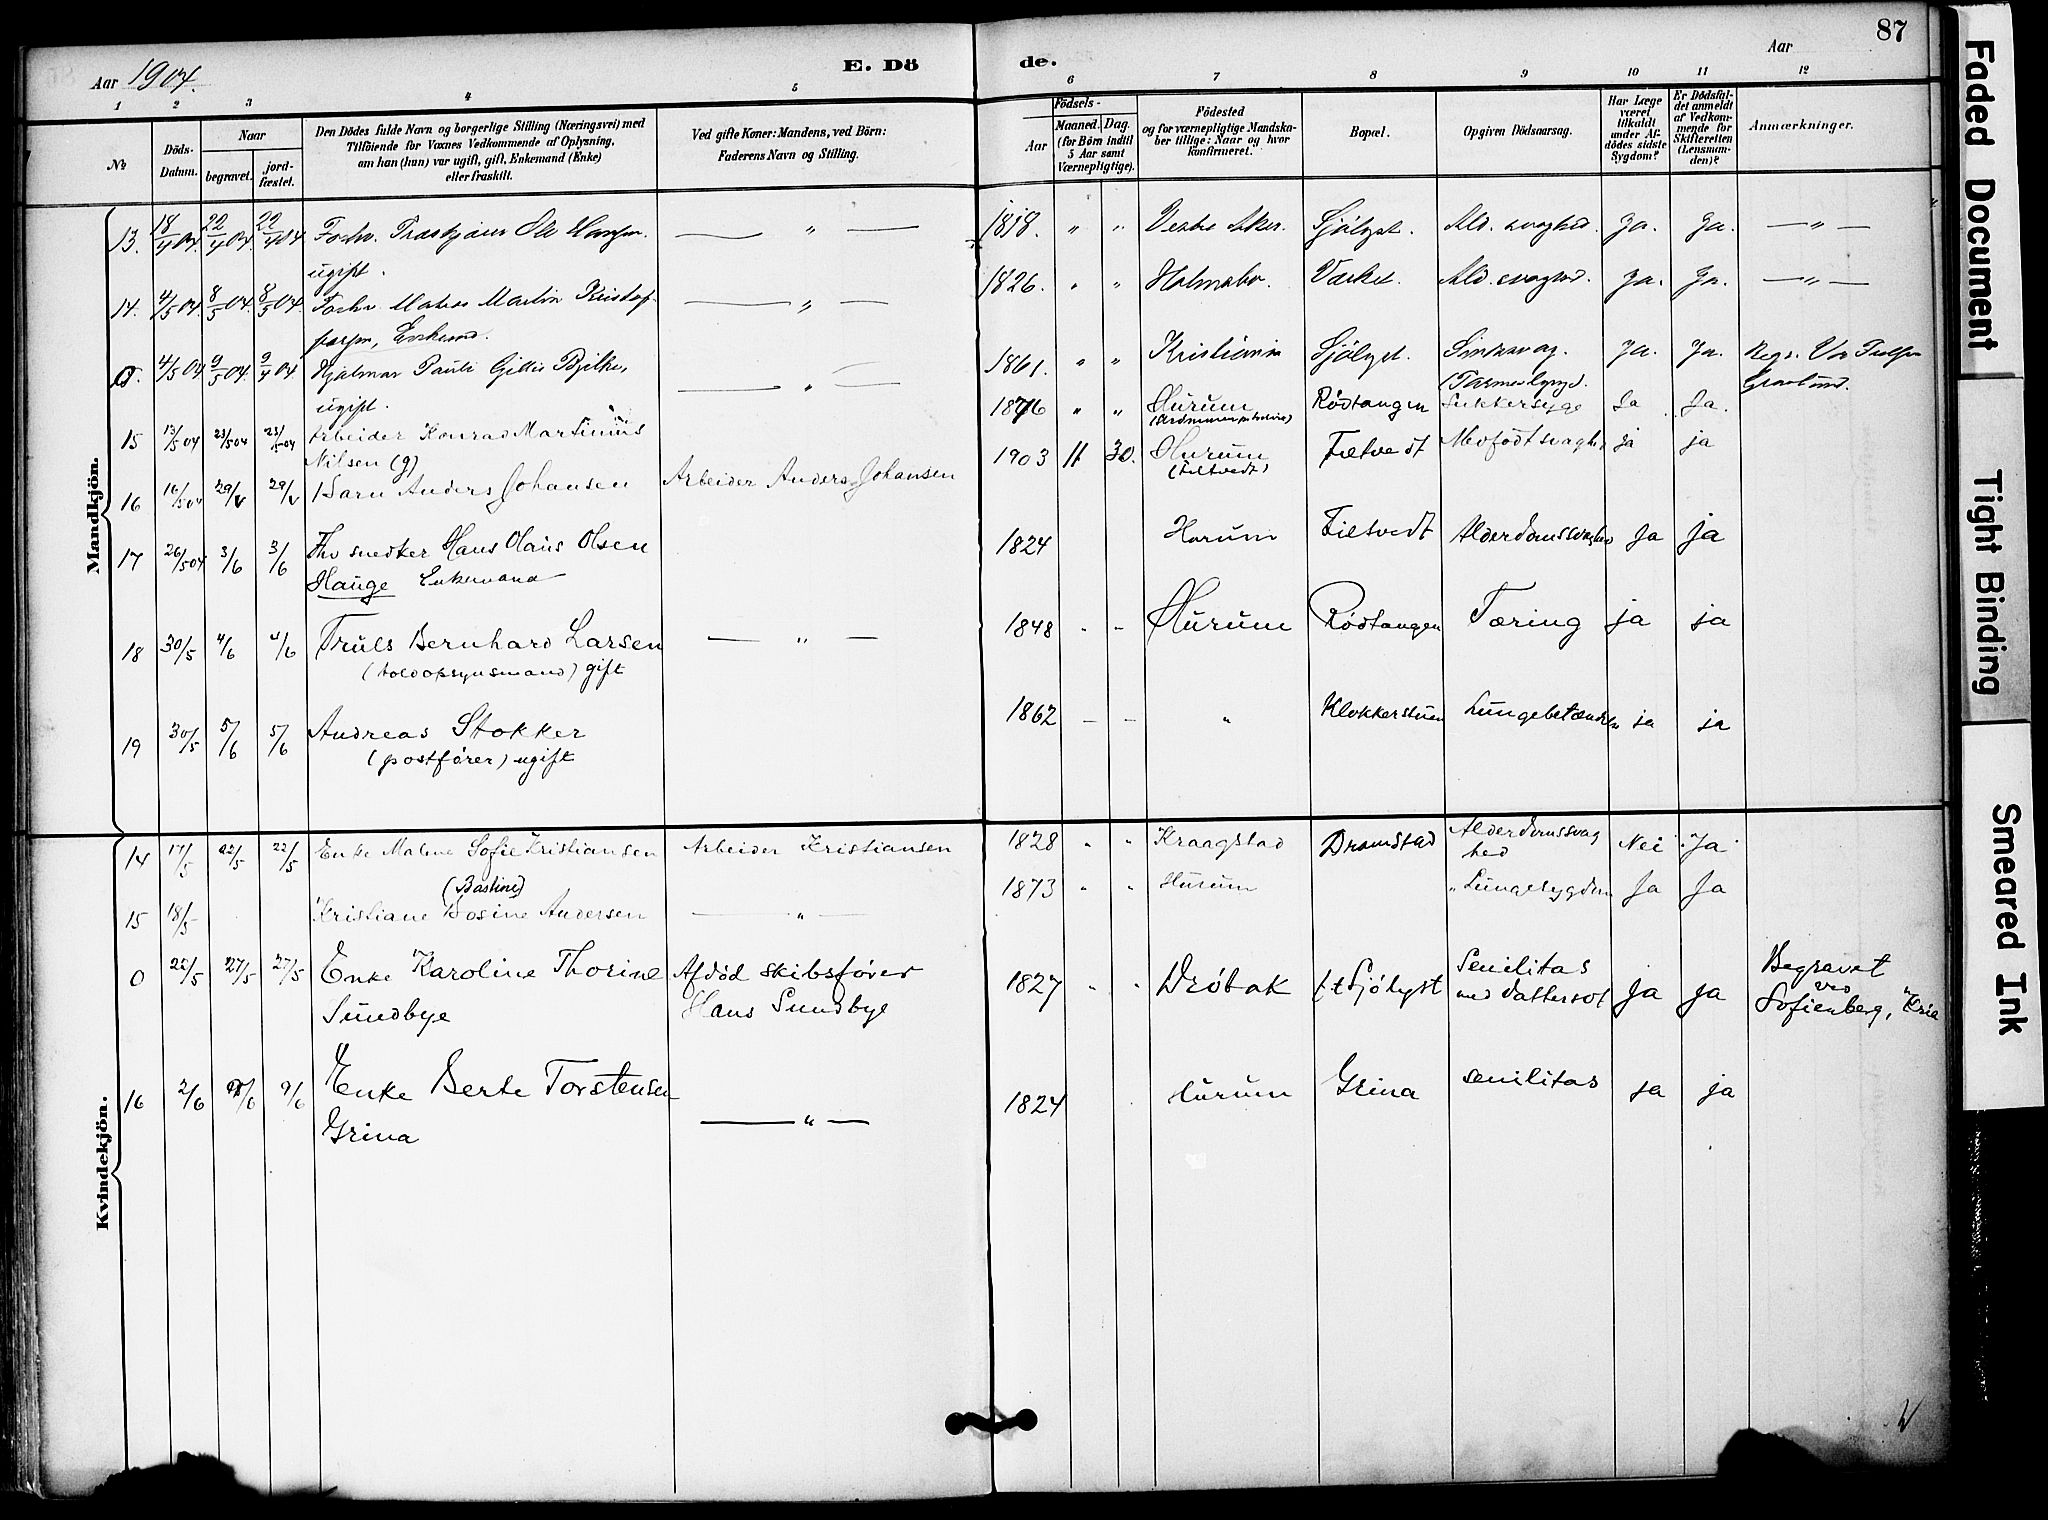 87
Aar 1904.
E. Dö de.
Aar
1 2 3 4 5 6 7 8 9 10 11 12
No
Döds-Datum.
Naar
begravet.
jord-fæstet.
Den Dödes fulde Navn og borgerlige Stilling (Næringsvei) med
Tilföiende for Voxnes Vedkommende af Oplysning,
om han (hun) var ugift, gift, Enkemand (Enke)
eller fraskilt.
Ved gifte Koner: Mandens, ved Börn:
Faderens Navn og Stilling.
Födsels-
Aar
Maaned. Dag.
(for Börn indtil
5 Aar samt
Værnepligtige).
Födested
og for værnepligtige Mandska-
ber tillige: Naar og hvor
konfirmeret.
Bopæl.
Opgiven Dödsaarsag.
Har Læge
været
tilkaldt
under Af-
dödes sidste
Sygdom?
Er Dödsfal-
det anmeldt
af Vedkom-
mende for
Skifteretten
(Lensman-
den)?
Anmærkninger.
Mandkjön.
13. 18/4 04 22/4 04. 22/4 04 Ole Hansen. — " — 1818. " " Vestre Aker. Sjölyst. Ald. svaghed. Ja. Ja. — " —
ugift.
14. 4/5 04. 8/5 04. 8/5 04. Martin Kristof- — " — 1826. " " Ald. svaghed. Ja. Ja. — " —
fersen, Enkemd.
0. 4/5 04 9/5 04. 9/4 04. Hjalmar Pauli — " — 1861. " " Kristiania Sjölyst. Sindssvag. Ja. Ja. Begr. Vor Frelsers
ugift. Gravlund.
15 13/5 04 23/5 04 23/5 04 Arbeider Konrad Martinius 1876 " " Hurum Rödtangen Sukkersyge Ja Ja.
Nilsen (g)
16 16/5 04 29/V 29/V Barn Anders Johansen Arbeider Anders Johansen 1903 11 30. Hurum Filtvedt Medfödt svaghed ja ja
(Filtvedt)
17 26/5 04 3/6 3/6 Fhv snedker Hans Olaus Olsen 1824 Hurum Filtvedt Alderdomssvaghed Ja ja
Hauge Enkemand
18 30/5 4/6 4/6 Truls Bernhard Larsen — " — 1848 - - Hurum Rödtangen Tæring ja ja
(toldopsynsmand) gift
19 30/5 5/6 5/6 Andreas Stokker 1862 - - " Klokkerstuen Lungebetændelse ja ja
(postförer) ugift
Kvindekjön.
14 17/5 22/5 22/5 Enke Malene Sofie Kristiansen Arbeider Kristiansen 1828 " " Kraagstad Dramstad Alderdomssvag Nei Ja
hed
(Bastine)
15 18/5 Kristiane Bosine Andersen — " — 1873 " " Hurum Lungesygdom Ja Ja
0 22/5 27/5 27/5 Enke Karoline Thorine Afdöd skibsförer 1827 " " Dröbak f.t Sjölyst Senilitas Ja Ja Begravet
Sundbye Hans Sundbye med Vattersot ved
Sofienberg, Kria
16 2/6 9/6 9/6 Enke Berte Torstensen — " — 1824 Hurum Grina senilitas ja ja
Grina
Faded Document
Tight Binding
Smeared Ink